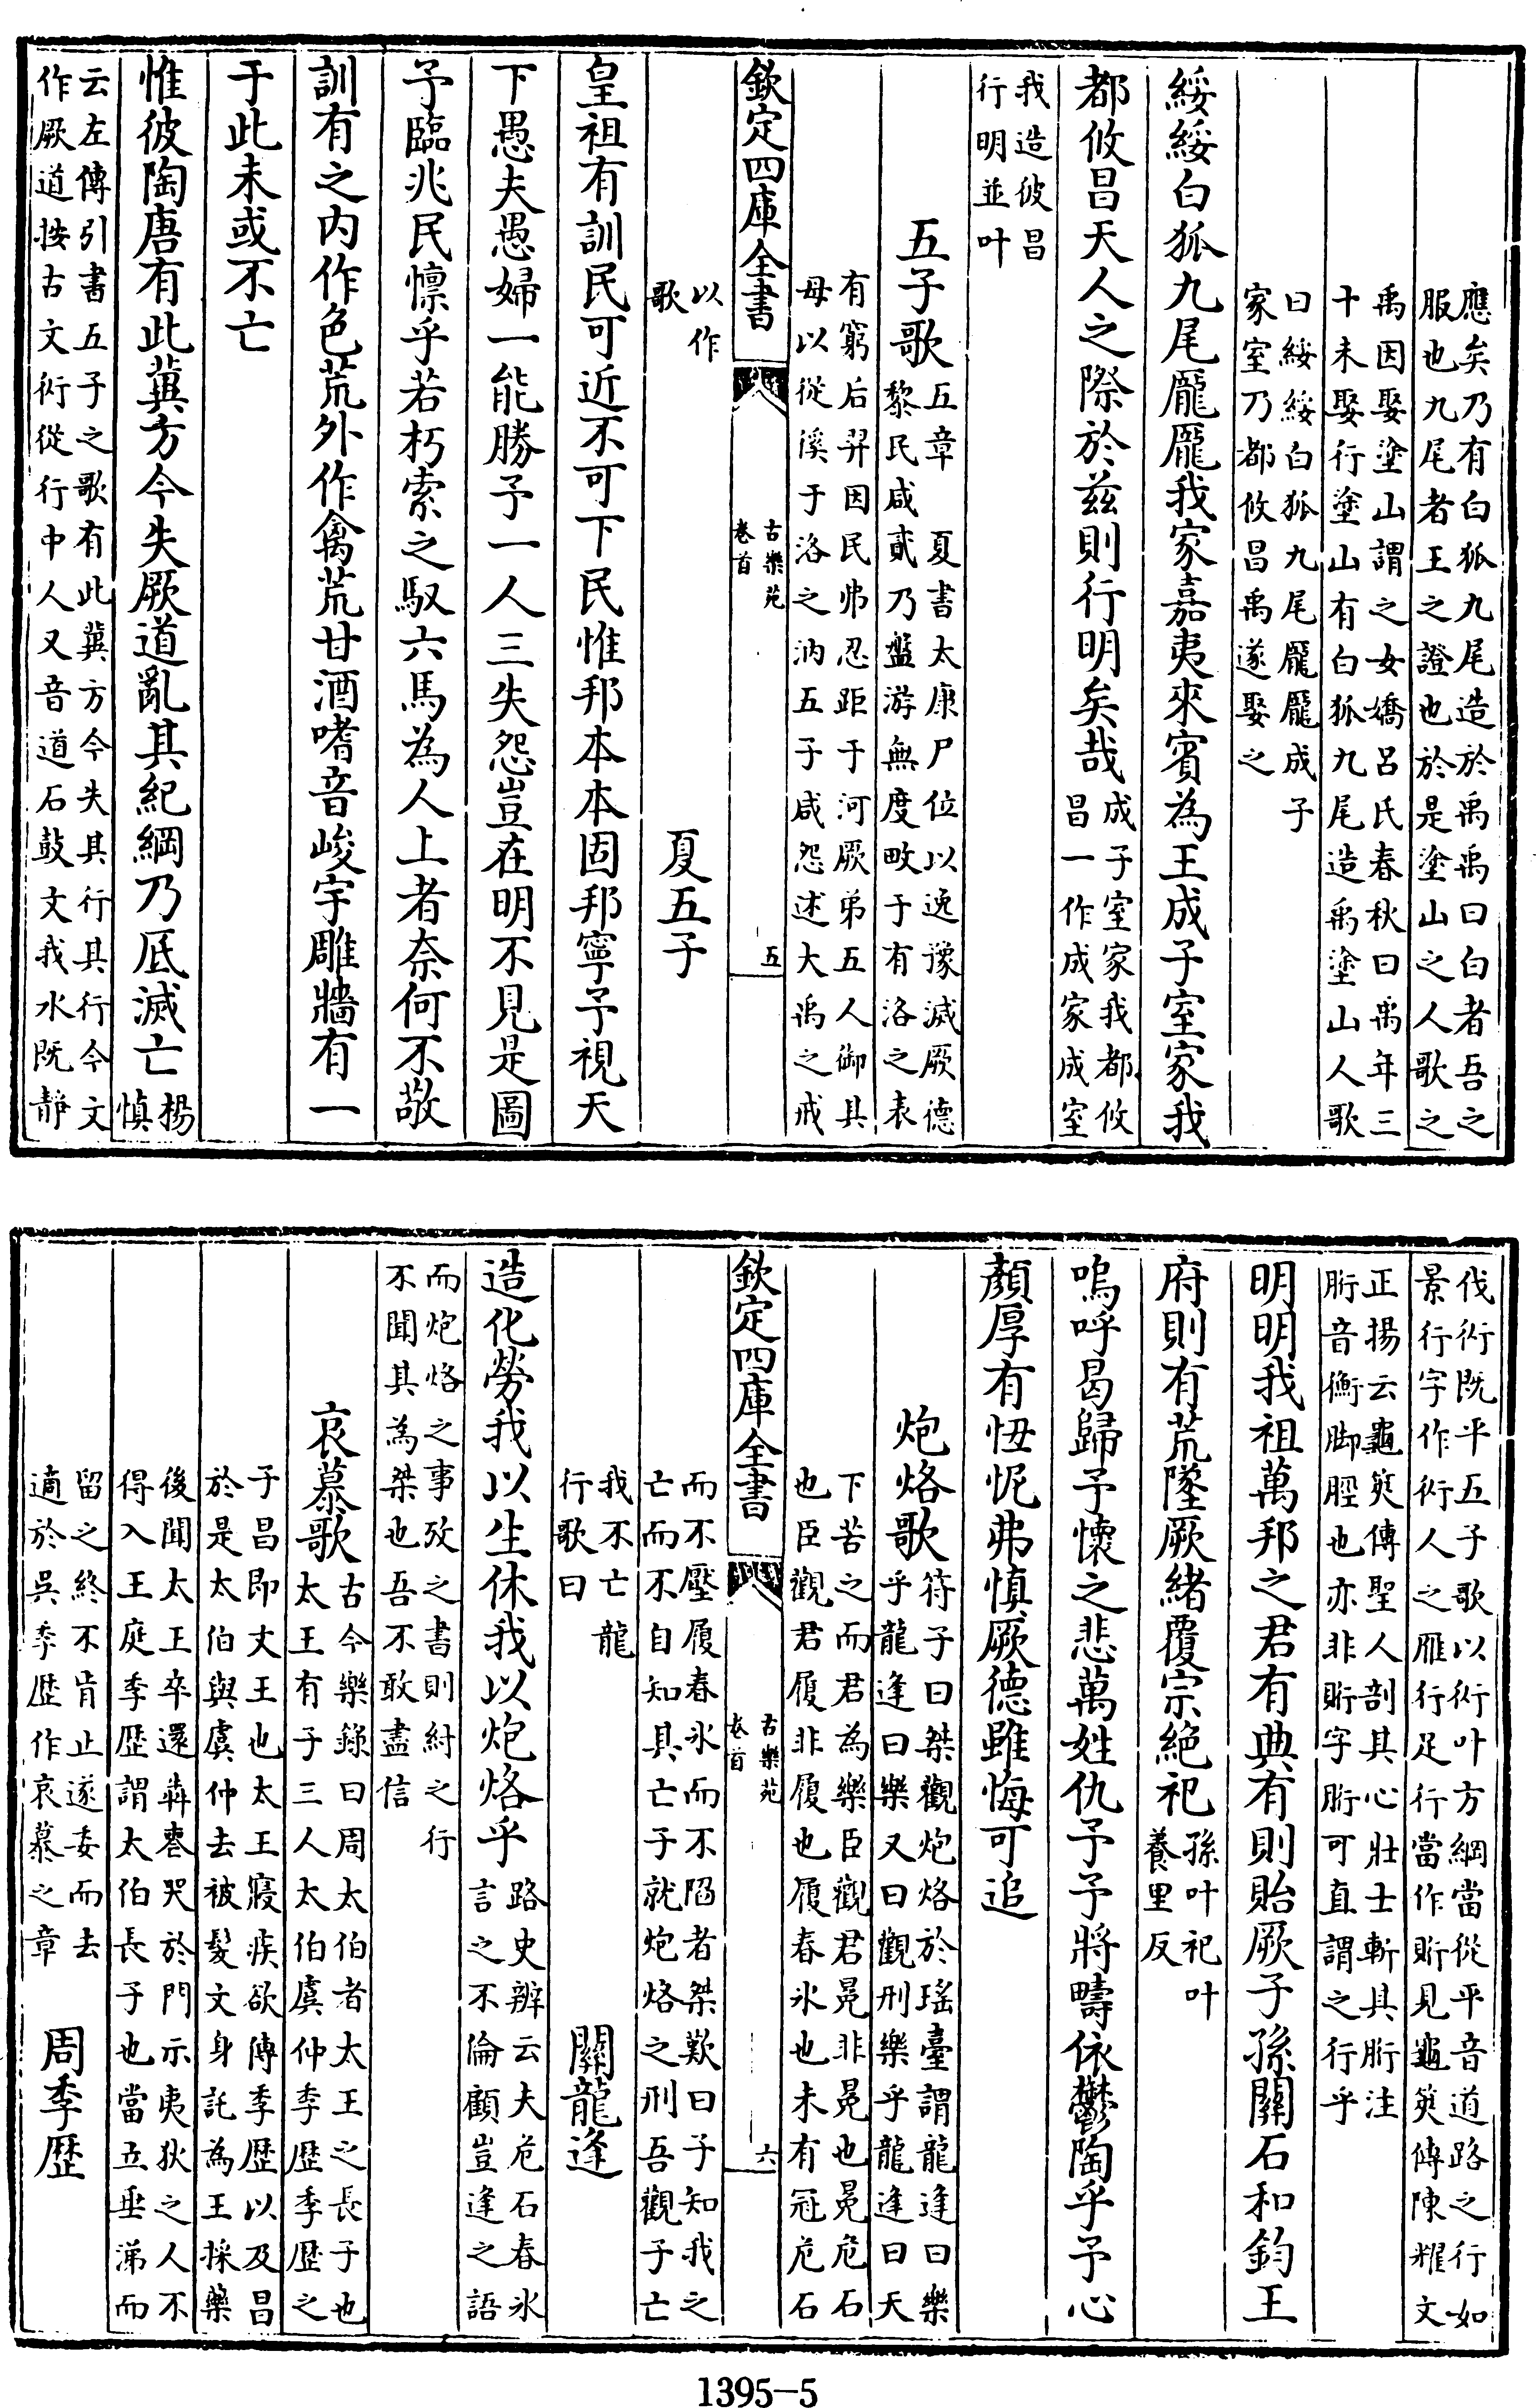 應矣乃有白狐九尾造於禹禹曰白者吾之
服也九尾者王之證也於是塗山之人歌之
禹因娶塗山謂之女嬌吕氏春秋曰禹年三
十未娶行塗山有白狐九尾造禹塗山人歌
曰綏綏白狐九尾龎龎成子
家室乃都攸昌禹遂娶之
綏綏白狐九尾龎龎我家嘉夷來賓為王成子室家我
都攸昌天人之際於兹則行明矣哉
成子室家我都攸
昌一作成家成室
我造彼昌
行明並叶
五子歌
五章　夏書太康尸位以逸豫滅厥德
黎民咸貳乃盤游無度畋于有洛之表
有窮后羿因民弗忍距于河厥弟五人御其
母以從徯于洛之汭五子咸怨述大禹之戒
欽定四庫全書
古樂苑
卷首
五
以作
歌
夏五子
皇祖有訓民可近不可下民惟邦本本固邦寧予視天
下愚夫愚婦一能勝予一人三失怨豈在明不見是圖
予臨兆民懔乎若朽索之馭六馬為人上者奈何不敬
訓有之内作色荒外作禽荒甘酒嗜音峻宇雕牆有一
于此未或不亡
惟彼陶唐有此冀方今失厥道亂其紀綱乃厎滅亡
楊
慎
云左傳引書五子之歌有此冀方今失其行其行今文
作厥道按古文衏從行中人又音道石鼓文我水既靜
伐衏既平五子歌以衏叶方綱當從平音道路之行如
景行字作衏人之雁行足行當作䯒見龜筴傳陳耀文
正揚云龜筴傳聖人剖其心壯士斬其胻注
胻音衡脚脛也亦非䯒字胻可直謂之行乎
明明我祖萬邦之君有典有則貽厥子孫關石和鈞王
府則有荒墜厥緒覆宗絶祀
孫叶祀叶
養里反
嗚呼曷歸予懷之悲萬姓仇予予將疇依鬱陶乎予心
顏厚有忸怩弗慎厥德雖悔可追
炮烙歌
符子曰桀觀炮烙於瑤臺謂龍逢曰樂
乎龍逢曰樂又曰觀刑樂乎龍逢曰天
下苦之而君為樂臣觀君冕非冕也冕危石
也臣觀君履非履也履春氷也未有冠危石
欽定四庫全書
古樂苑
卷首
六
而不壓履春氷而不陷者桀歎曰子知我之
亡而不自知其亡子就炮烙之刑吾觀子亡
我不亡龍
行歌曰
關龍逢
造化勞我以生休我以炮烙乎
路史辨云夫危石春氷
言之不倫顧豈逢之語
而炮烙之事攷之書則紂之行
不聞其為桀也吾不敢盡信
哀慕歌
古今樂錄曰周太伯者太王之長子也
太王有子三人太伯虞仲季歴季歴之
子昌即文王也太王寢疾欲傳季歴以及昌
於是太伯與虞仲去被髮文身託為王採藥
後聞太王卒還犇喪哭於門示夷狄之人不
得入王庭季歴謂太伯長子也當立垂涕而
留之終不肯止遂委而去
適於吳季歴作哀慕之章
周季歴
1395-5